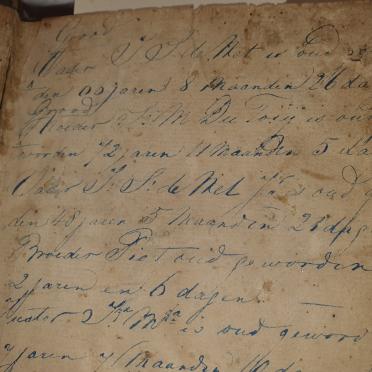 Groot
Vader J. S. de Wet is oud ge
den 00 jaren 8 maanden 26 da
Groot
Moeder S. M. Du Toiy is oud
worden 72 jaren 11 maanden 5 da
Vader J. S. de Wet is oud g
den 48 jaren 5 maanden 2 dag
Broeder Piet oud geworden
2 jaren en 6 dagen
uster is oud geword
jaren 7 maanden 10 da